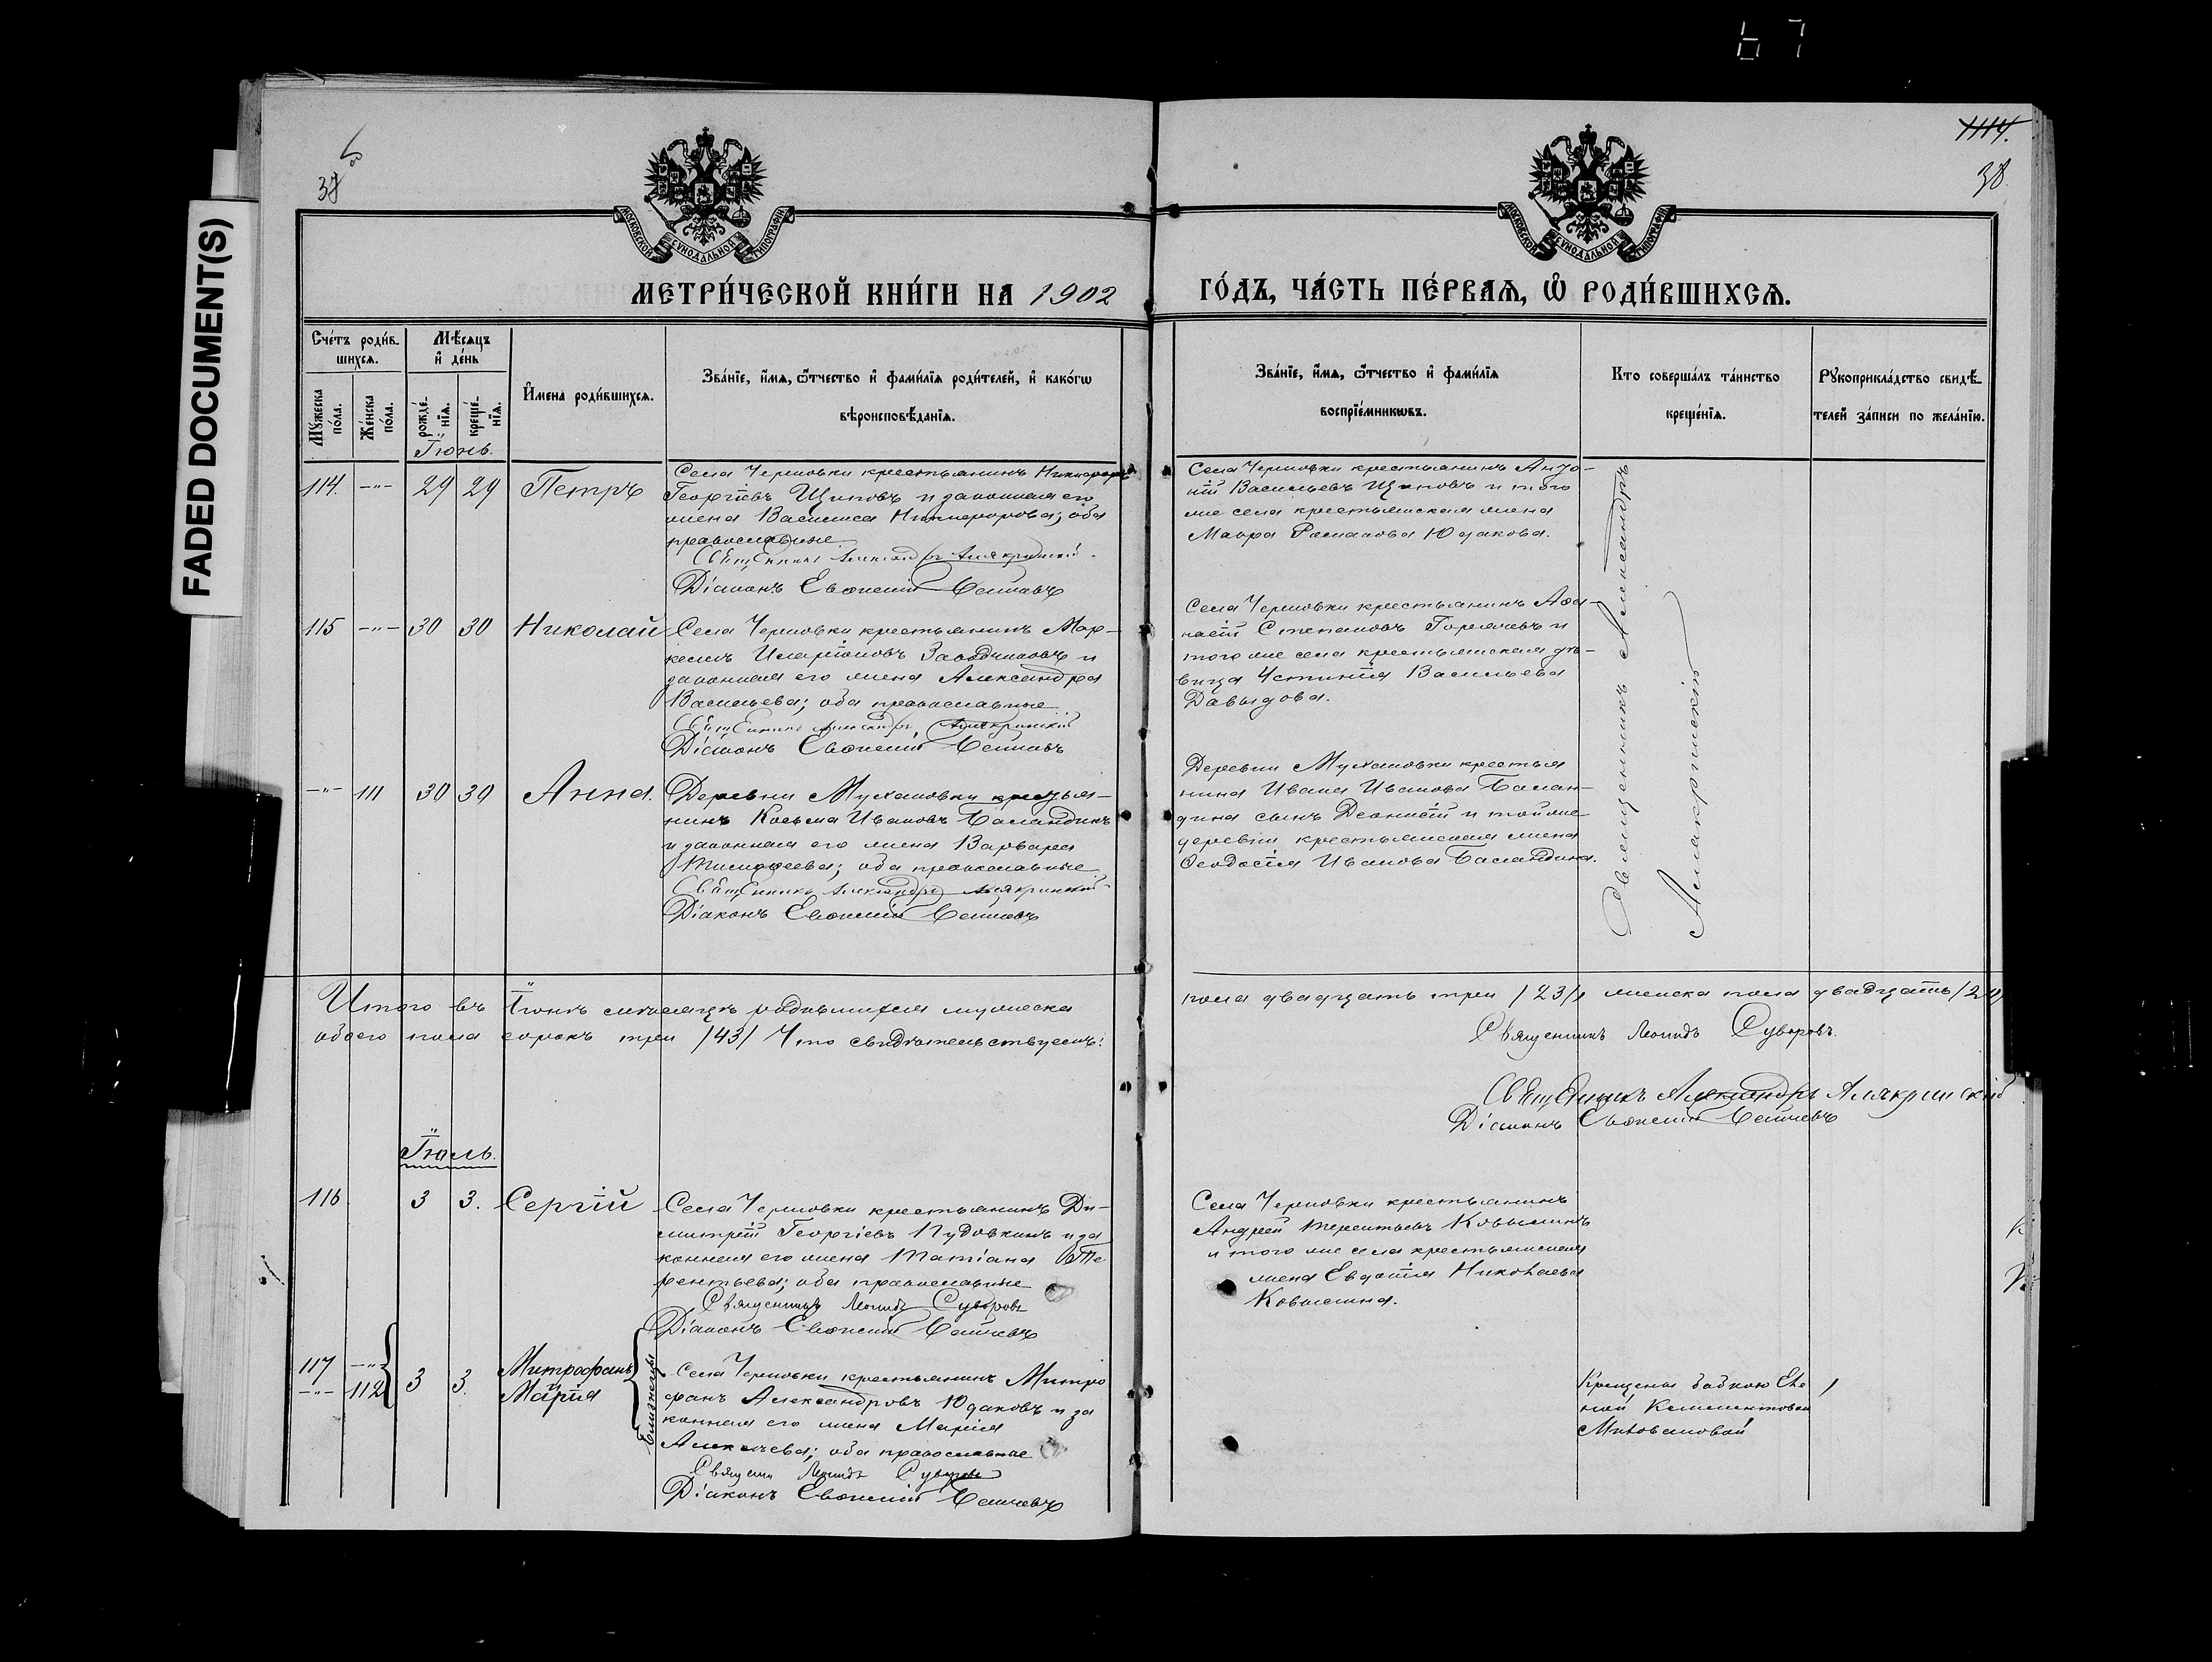 FADED DOCUMENT(S)
67
38
1114.
38.
МОСКОВСКОЙ СѴНОДАЛЬНОЙ ТИПОГРАФІИ
МОСКОВСКОЙ СѴНОДАЛЬНОЙ ТИПОГРАФІИ
МЕТРИ́ЧЕСКОЙ КНИ́ГИ НА 1902
ГО́ДЪ, ЧА́СТЬ ПЕ́РВАѦ, Ѽ РОДИ́ВШИХСѦ.
Сче́тъ роди́в-
шихсѧ.
Мꙋ́жеска по́ла.
Же́нска по́ла.
Мѣ́сѧцъ
и҆ де́нь
рожде́-нїѧ.
креще́-нїѧ.
И҆мена̀ роди́вшихсѧ.
Зва́нїе, и҆́мѧ, ѻ҆́тчество и҆ фами́лїѧ роди́телей, и҆ како́гѡ
вѣроисповѣ́данїѧ.
Зва́нїе, и҆́мѧ, ѻ҆́тчество и҆ фами́лїѧ
воспрїе́мникѡвъ.
Кто̀ соверша́лъ та́инство
креще́нїѧ.
Рꙋкоприкла́дство свидѣ́-
телей за́писи по жела́нїю.
Іюнь.
114. -"- 29 29 Петръ
Села Черновки крестьянинъ Никифоръ
Георгіевъ Щиповъ и законная его
жена Василиса Никифорова; оба
православные
Священникъ Александръ Алякринскій.
Діаконъ Евѳимій
Села Черновки крестьянинъ
Васильевъ Щиповъ и того
же села крестьянская жена
Мавра Романова Юдакова.
115 -"- 30 30 Николай
Села Черновки крестьянинъ Мар-
келъ Иларіоновъ и
законная его жена Александра
Васильева; оба православные
Священникъ Александръ Алякринскій
Діаконъ Евѳимій
Села Черновки крестьянинъ Аѳа-
насій Степановъ Горячевъ и
того же села крестьянская дѣ-
вица Устинія Васильева
Давыдова.
-"- 111 30 30 Анна.
Деревни Мухановки крестья-
нинъ Косьма Ивановъ Баландинъ
и законная его жена Варвара
Тимоѳеева; оба православные
Священникъ Александръ Алякринскій
Діаконъ Евѳимій
Деревни Мухановки крестья
нина Ивана Иванова Балан-
дина сынъ Діонисій и той же
деревни крестьянская жена
Ѳеодосія Иванова Баландина.
Священникъ Александръ
Алякринскій
Итого въ Іюнѣ мѣсяцѣ родившихся мужеска
пола двадцать три /23/, женска пола двадцать /20/
обоего пола сорокъ три /43/ Что свидѣтельствуемъ:
Священникъ Леонидъ Суворовъ.
Священникъ Александръ Алякринскій
Діаконъ Евѳимій
Іюль.
116 3 3. Сергій
Села Черновки крестьянинъ Ди-
митрій Георгіевъ Пудовкинъ и за
конная его жена Татіана Те
рентьева; оба православные
Священникъ Леонидъ Суворовъ
Діаконъ Евѳимій
Села Черновки крестьянинъ
Андрей Терентьевъ Ковылинъ
и того же села крестьянская
жена Евдокія Николаева
Ковылина.
117 -"- 3 3. Митрофанъ
-"- 112 Марія
Близнецы
Села Черновки крестьянинъ Митро
фанъ Александровъ Юдаковъ и за
конная его жена Марія
Алексѣева; оба православные
Священ. Леонидъ Суворовъ
Діаконъ Евѳимій
Крещены бабкою Еле
ной Климентовой